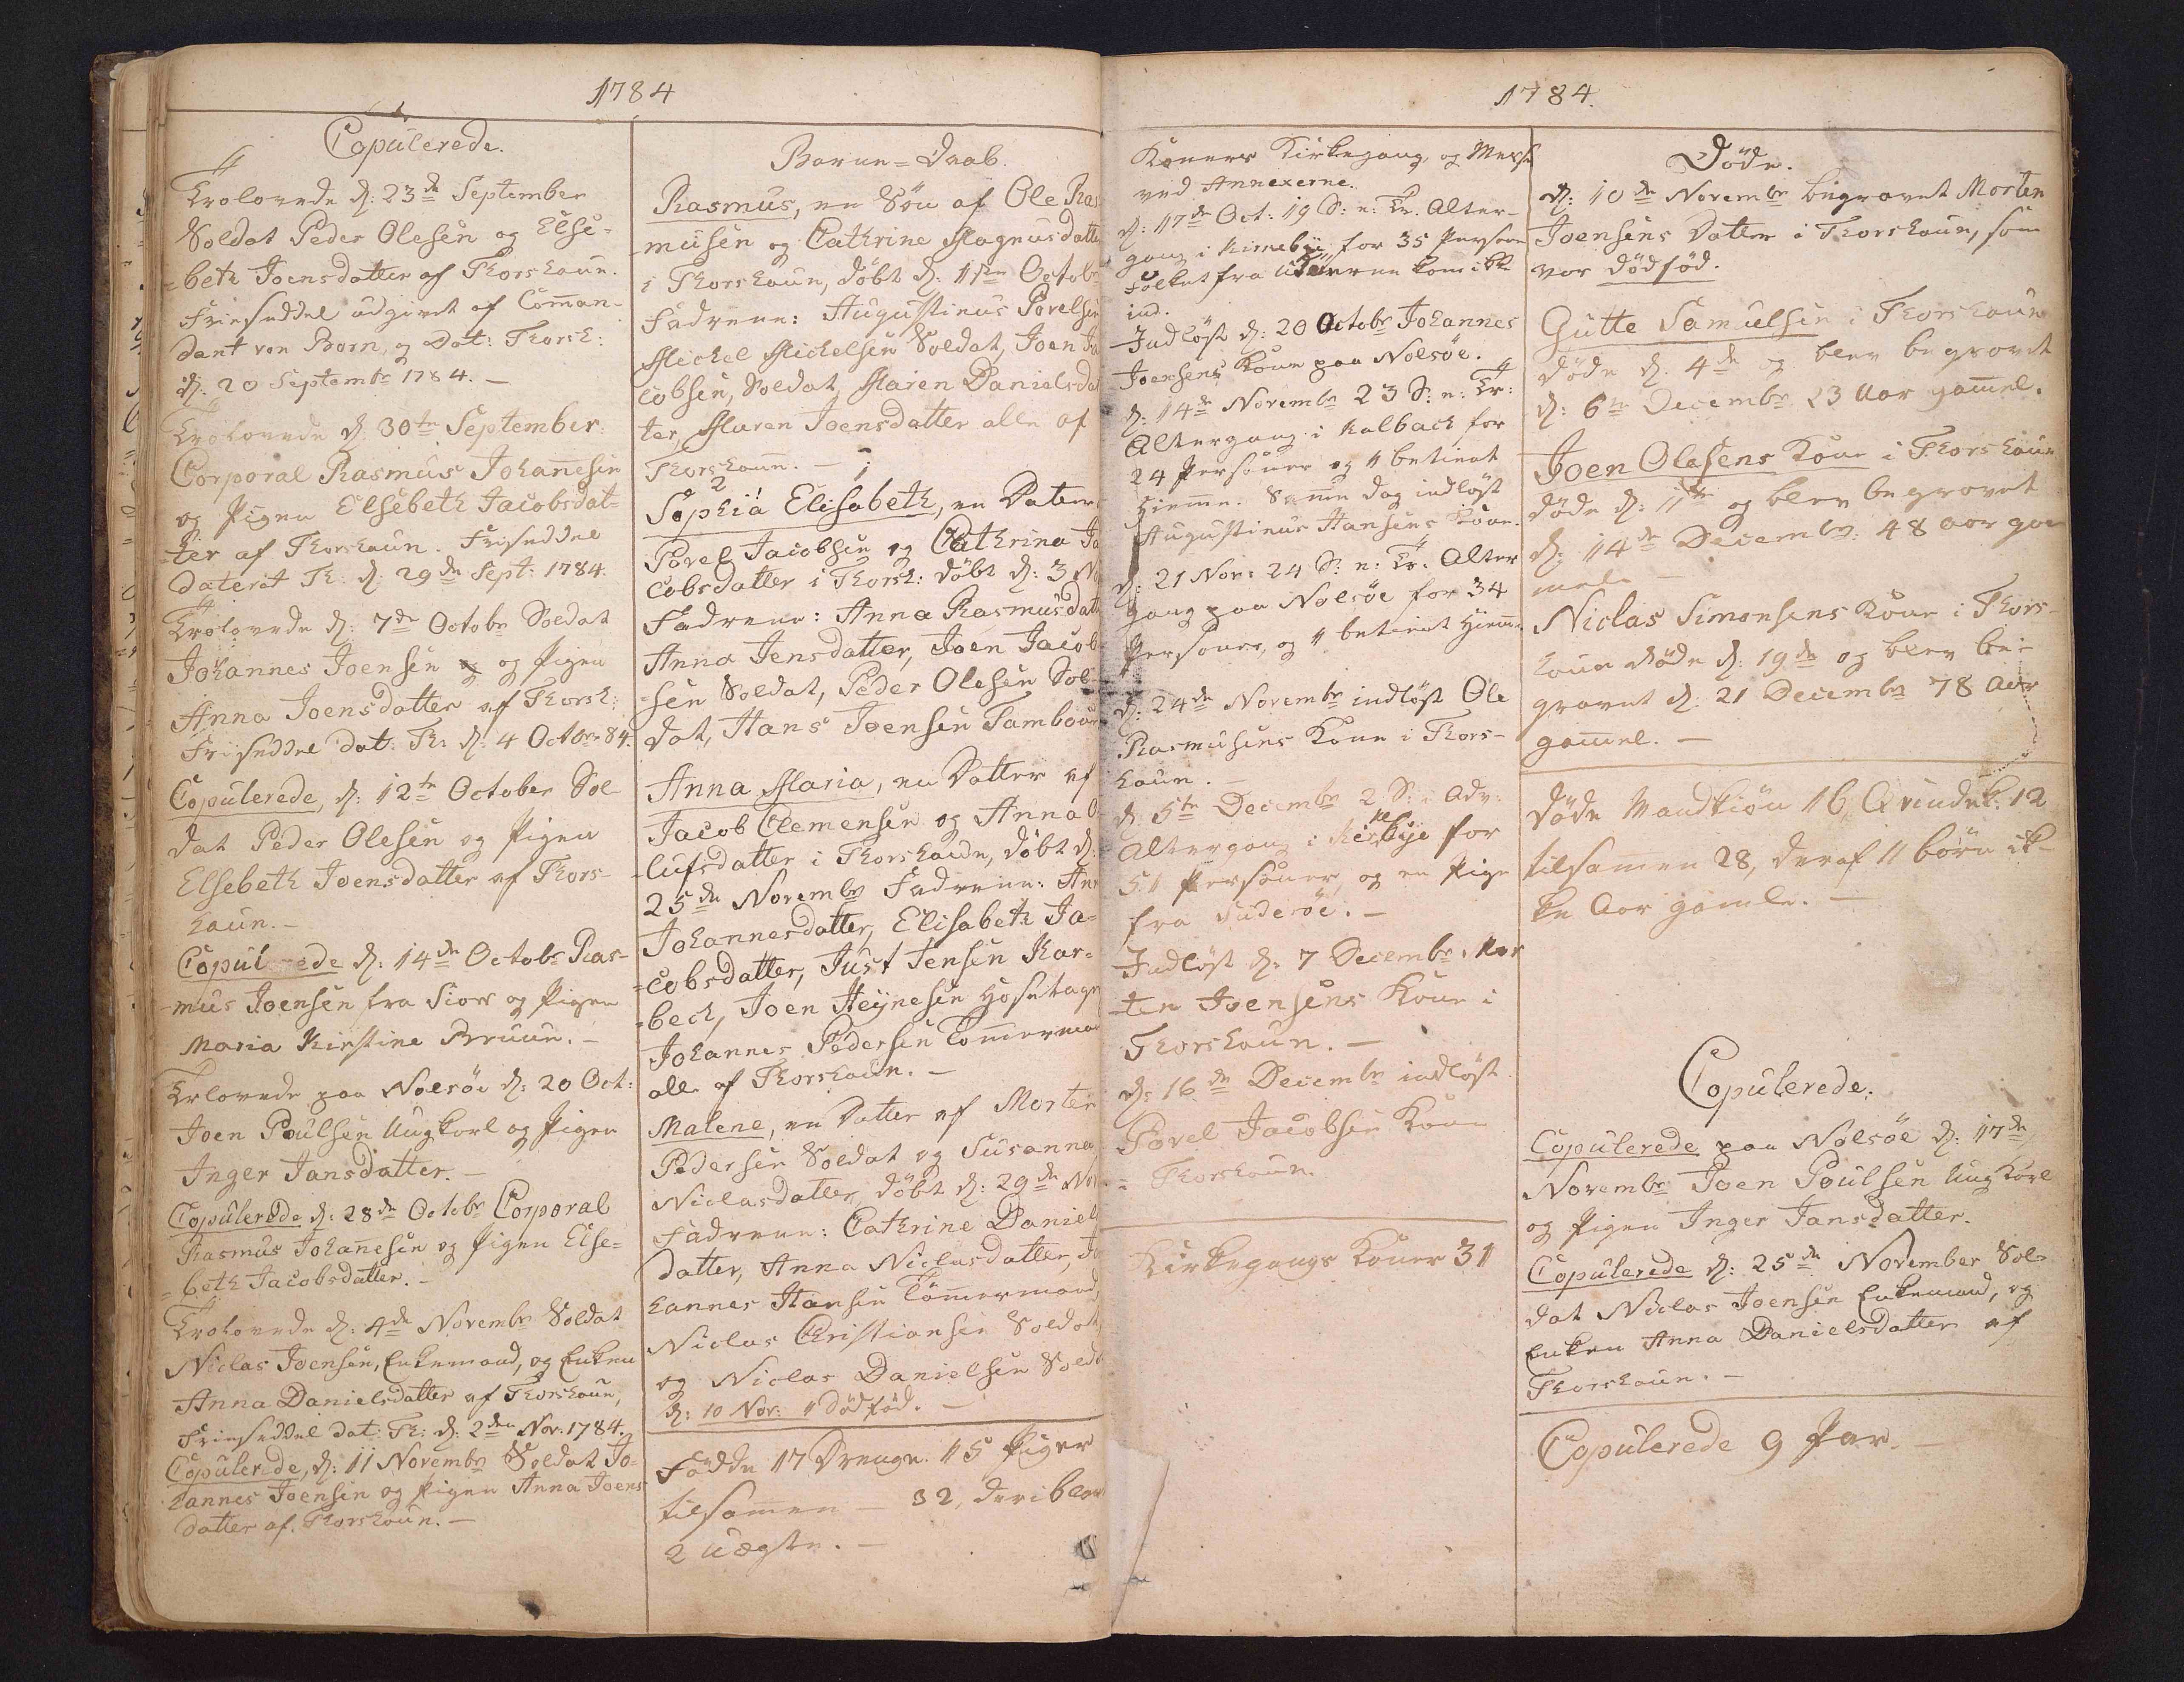 1784
Copulerede.
Trolovede d: 23de September
Soldat Peder Olesen og Else-
-beth Joensdatter af Thorshaun.
Frieseddel udgivet af Com̄an-
dant von Born, og Dat: Thorsh:
d: 20 Septembr 1784. -
Trolovede d: 30te September
Corporal Rasmus Johan̄esen
og Pigen Elsebeth Jacobsdat-
ter af Thorshaun. Friseddel
dateret Th: d: 29de Sept: 1784.
Trolovede d: 7de Octobr Soldat
Johannes Joensen og Pigen
Anna Joensdatter af Thorsh:
Friseddel dat: Th: d: 4 Octobr 84.
Copulerede, d: 12te October Sol-
dat Peder Olesen og Pigen
Elsebeth Joensdatter af Thors-
haun. -
Copulerede d: 14de Octobr Ras-
-mus Joensen fra Siov og Pigen
Maria Kirstine Bruun. -
Trlovede paa Nolsöe d: 20 Oct:
Joen Poulsen Ungkarl og Pigen
Inger Jansdatter. -
Copulerede d: 28de Octobr Corporal
Rasmus Johan̄esen og Pigen Else-
-beth Jacobsdatter. -
Trolovede d: 4de Novembr Soldat
Niclas Joensen, Enkemand, og Enken
Anna Danielsdatter af Thorshaun,
Friseddel dat: Th: d: 2den Nov: 1784.
Copulerede, d: 11 Novembr Soldat Jo-
hannes Joensen og Pigen Anna Joens
datter af Thorshaun. -
Barne-Daab.
Rasmus, en Sön af Ole Ras
-musen og Cathrine Magnusdatte
i Thorshaun, döbt d: 1ste Octobr
Fadrene: Augustinus Povelsen
Michel Michelsen Soldat, Joen Ja
cobsen, Soldat, Maren Danielsdat
ter, Maren Joensdatter alle af
Thorshaun. -
2 1
Sophia Elisabeth, en Datter
Povel Jacobsen og Cathrina Ja
cobsdatter i Thorsh: döbt d: 3 No
Fadrene: Anna Rasmusdatt
Anna Jensdatter, Joen Jacob
-sen Soldat, Peder Olesen Sol-
dat, Hans Joensen Tambour
Anna Maria, en Datter af
Jacob Clemensen og Anna O
-lufsdatter i Thorshaun, döbt d:
25de Novembr Fadrene: Ann
Johannesdatter, Elisabeth Ja-
-cobsdatter, Just Jensen Kar-
-bech, Joen Heÿnesen
Johannes Pedersen Tom̄erman
alle af Thorshaun. -
Malene, en Datter af Morten
Pedersen Soldat og Susanna
Niclasdatter, döbt d: 29de Nov
Fadrene: Cathrine Daniels
datter, Anna Niclasdatter, Jo
hannes Hansen Töm̄ermand,
Niclas Christiansen Soldat
og Niclas Danielsen Solda
d: 10 Nov: 1 Dödföd. -
Födde 17 Drenge. 15 Piger
tilsam̄en - 32, deriblan
2 Uægte. -
1784.
Koners Kirkegang, og Messe
ved Annexerne.
d: 17de Oct: 19 S: n: Tr. Alter-
gang i Kirkebÿe for 35 Person
Folket fra Udöerne kom ikke
ind.
Indlöst d: 20 Octobr Johannes
Joensens Kone paa Nolsöe.
d: 14de Novembr 23 S: n: Tr:
Altergang i Kalbach for
24 Personer og 1 betient
Hiem̄e. Sam̄e dag indlöst
Augustinus Hansens Kone.
d: 21 Nov: 24 S: n: Tr. Alter
gang paa Nolsöe for 34
Personer, og 1 betient Hiem̄e
d: 24de Novembr indlöst Ole
Rasmusens Kone i Thors-
haun. -
d: 5te Decembr 2 S: i Adv:
Altergang i Kirkebÿe for
51 Personer, og en Pige
fra Suderöe. -
Indlöst d: 7 Decembr Mor
-ten Joensens Kone i
Thorshaun. -
d: 16de Decembr indlöst
Povel Jacobsen Kone
i Thorshaun.
Kirkegangs Koner 31
Döde.
d: 10de Novembr begravet Morten
Joensens Datter i Thorshaun, som
var dödföd.
Gutte Samuelsen i Thorshaun
döde d: 4de og blev begravet
d: 6te Decembr 23 Aar gam̄el.
Joen Olesens Kone i Thorshaun
döde d: 11te og blev begravet
d: 14de Decembr: 48 Aar gam
mel. -
Niclas Simonsens Kone i Thors-
haun döde d: 19de og blev be-
gravet d: 21 Decembr 78 Aar
gam̄el. -
Döde Mandkiön 16, Qvindek: 12
tilsamen 28, deraf 11 börn ik-
ke Aar gamle. -
Copulerede.
Copulerede paa Nolsöe d: 17de
Novembr Joen Poulsen Ungkarl
og Pigen Inger Jansdatter.
Copulerede d: 25de November Sol-
dat Niclas Joensen Enkemand, og
Enken Anna Danielsdatter af
Thorshaun. -
Copulerede 9 Par. -